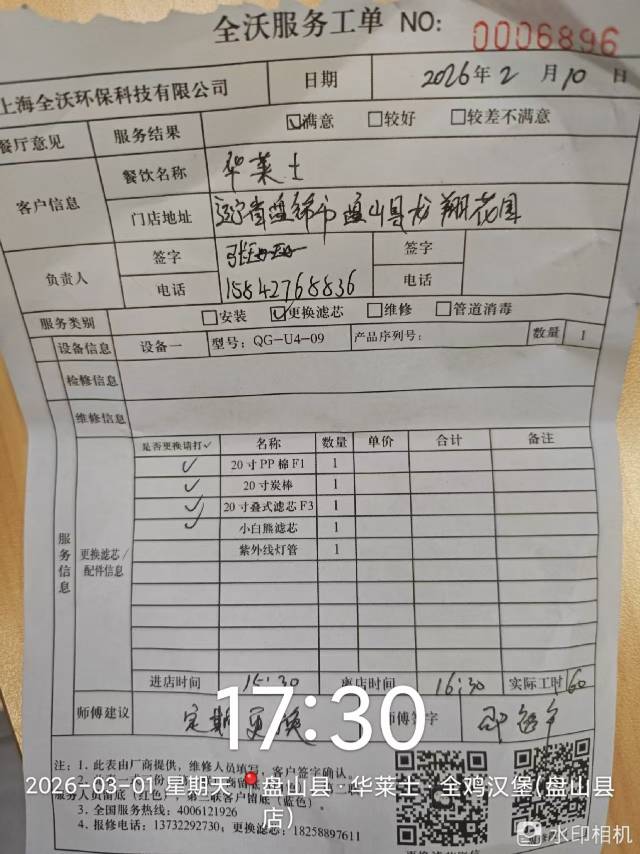 全沃服务工单 NO: 0006896
上海全沃环保科技有限公司 日期 2026年2月10日
餐厅意见 服务结果 ☑满意 □较好 □较差不满意
客户信息 餐饮名称 华莱士
门店地址 辽宁省盘锦市盘山县龙翔花园
负责人 签字 签字
电话 15842768836 电话
服务类别 □安装 ☑更换滤芯 □维修 □管道消毒
设备信息 设备一 型号: QG-U4-09 产品序列号: 数量 1
检修信息
维修信息
服务信息 更换滤芯/配件信息
是否更换请打✓ 名称 数量 单价 合计 备注
✓ 20寸PP棉F1 1
✓ 20寸炭棒 1
✓ 20寸叠式滤芯F3 1
✓ 小白熊滤芯 1
紫外线灯管 1
进店时间 15:30 离店时间 16:30 实际工时 60
师傅建议 定期更换 师傅签字
17:30
注: 1. 此表由厂商提供, 维修人员填写, 客户签字确认。
2026-03-01 星期天 盘山县·华莱士·全鸡汉堡(盘山县店)
服务人员留底(红色), 第三联客户留底(蓝色)。
3. 全国服务热线: 4006121926
4. 报修电话: 13732292730; 更换滤芯: 18258897611
水印相机